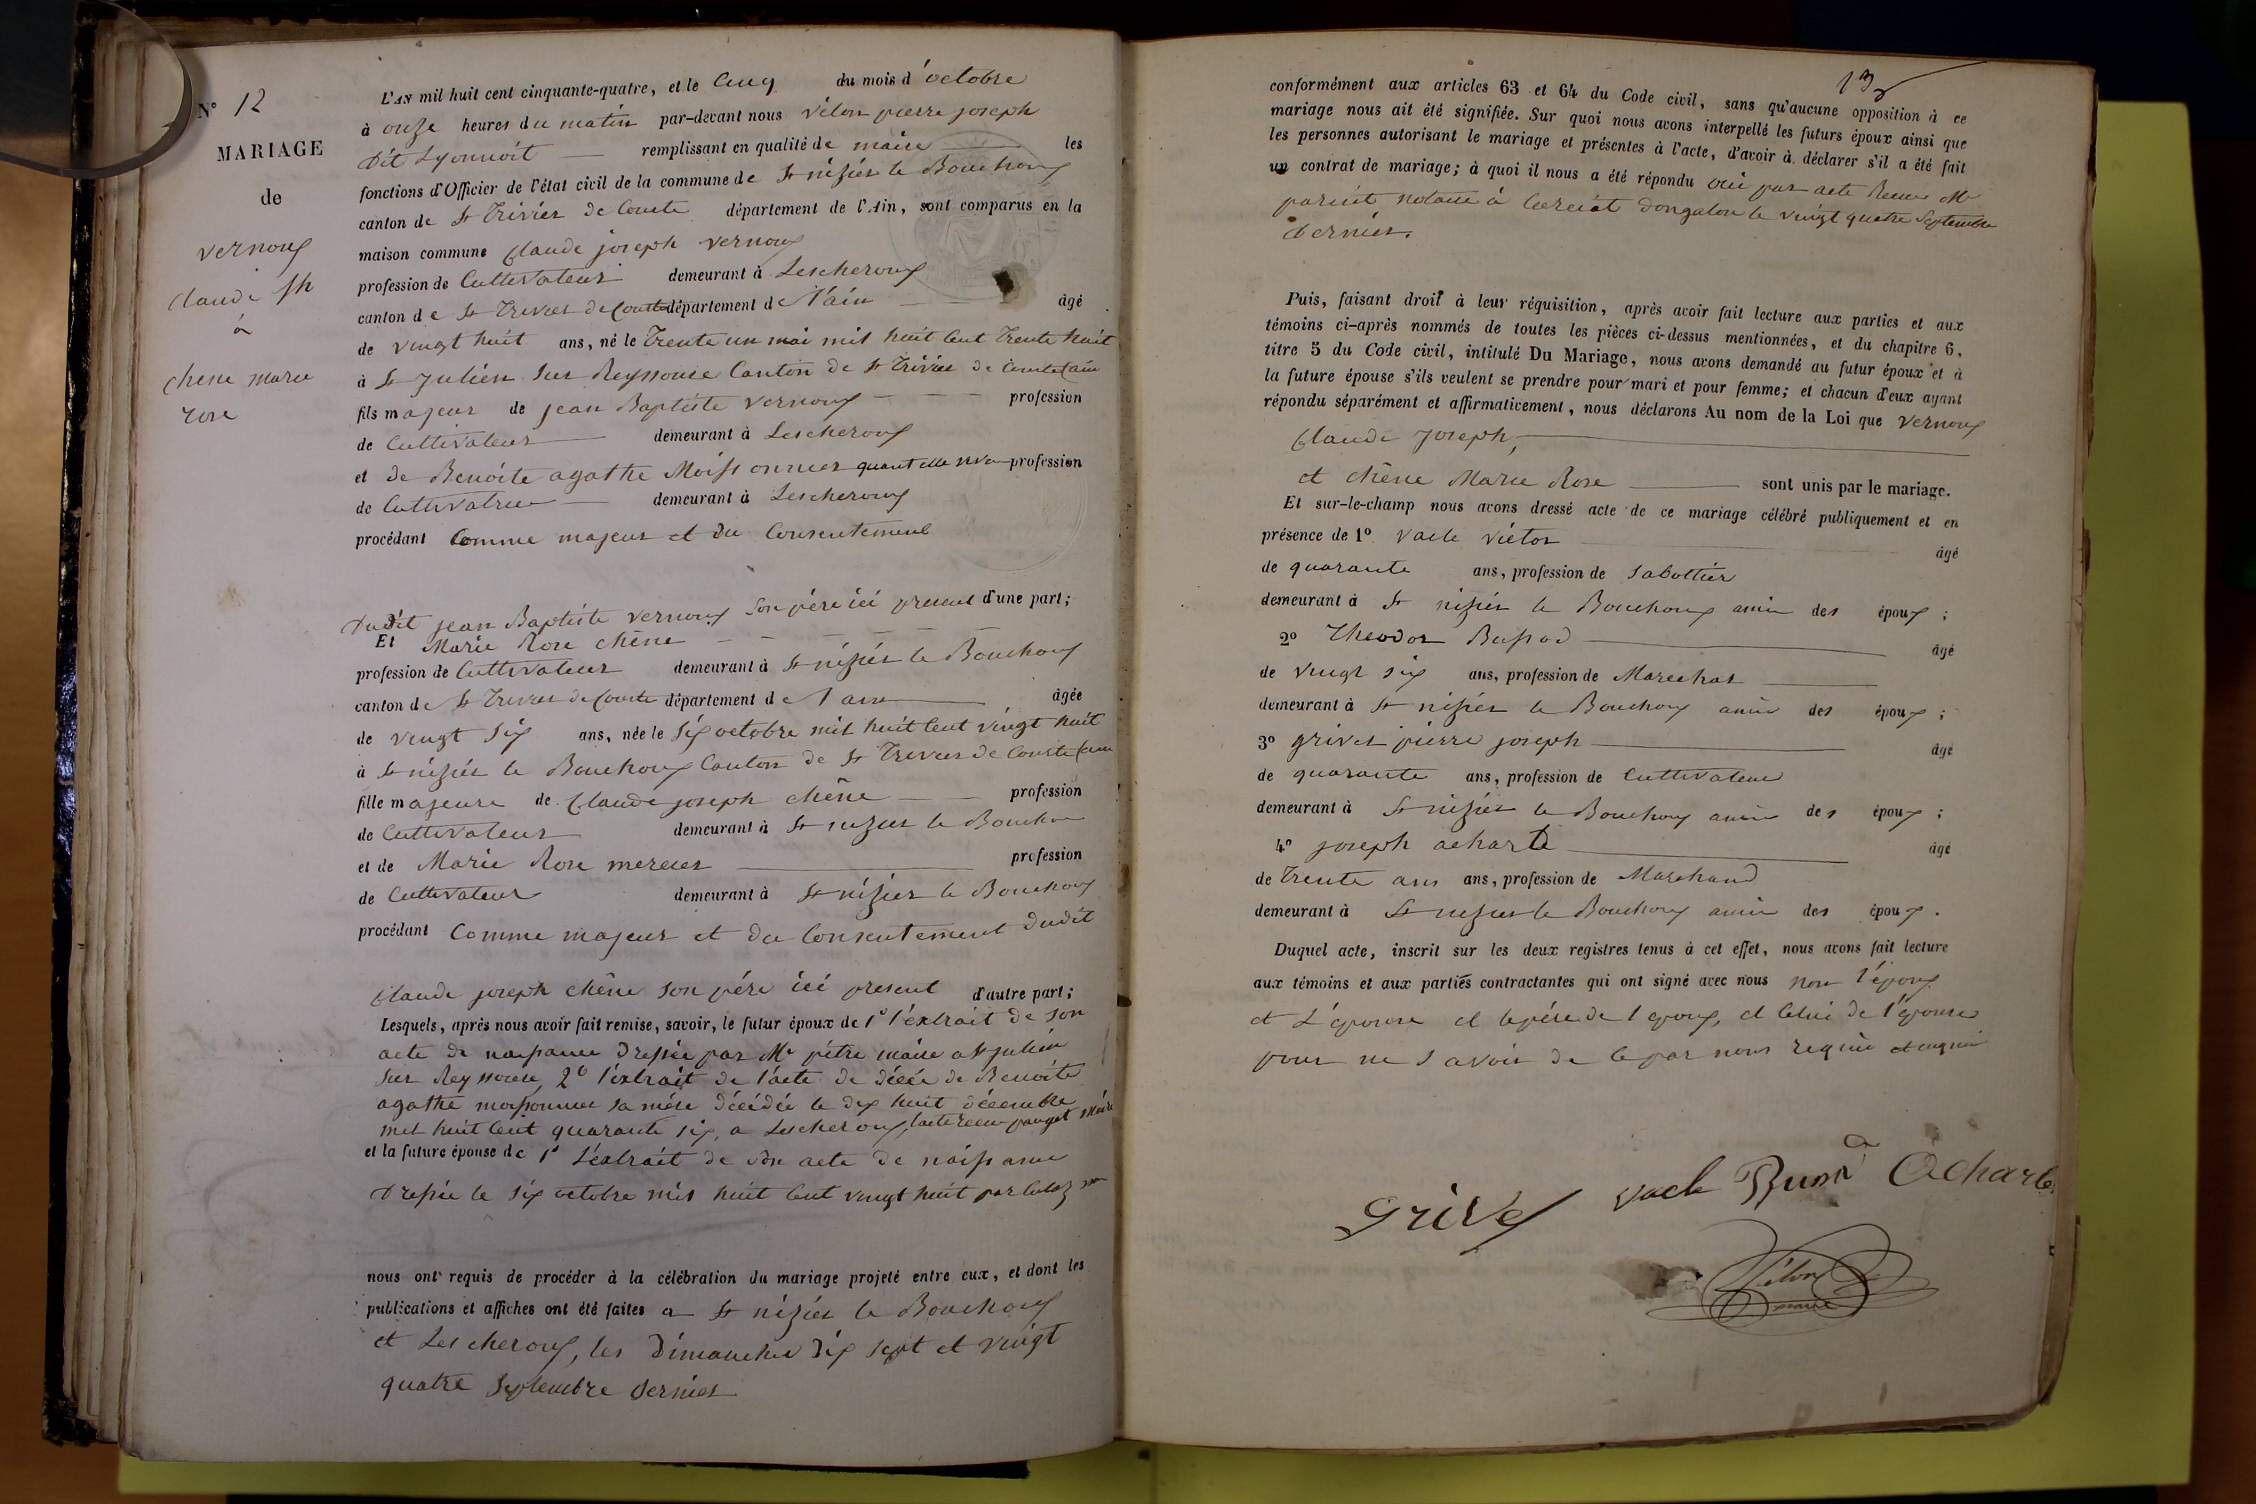 N° 12
MARIAGE
de
vernoux
Claude jh
à
chene marie
rose
L'AN mil huit cent cinquante-quatre, et le Cinq du mois d'octobre
à onze heures du matin par-devant nous vélon pierre joseph
dit Lyonnoit remplissant en qualité de maire les
fonctions d'Officier de l'état civil de la commune de St nizier le Bouchoux
canton de St Trivier de Courte département de l'Ain, sont comparus en la
maison commune Claude joseph vernoux
profession de Cultivateur demeurant à Lescheroux
canton de St Trivier de Courte département de l'ain âgé
de vingt huit ans, né le Trente un mai mil huit Cent Trente huit
à St Julien Sur Reyssouse Canton de St Trivier de Courte (ain
fils majeur de jean Baptiste vernoux profession
de Cultivateur demeurant à Lescheroux
et de Benoite agathe Moissonnier quant elle viva profession
de Cultivatrice demeurant à Lescheroux
procédant Comme majeur et du Consentement
dudit jean Baptiste vernoux Son père ici présent d'une part;
Et Marie Rose chêne
profession de Cultivateur demeurant à St nizier le Bouchoux
canton de St Trivier de Courte département de l'ain âgée
de vingt six ans, née le six octobre mil huit Cent vingt huit
à St nizier le Bouchoux Canton de St Trivier de Courte (ain
fille majeure de Claude joseph chêne profession
de Cultivateur demeurant à St nizier le Bouchou
et de Marie Rose mercier profession
de Cultivateur demeurant à St nizier le Bouchoux
procédant Comme majeur et du Consentement dudit
Claude joseph chêne son père ici présent d'autre part;
Lesquels, après nous avoir fait remise, savoir, le futur époux de 1° l'extrait de son
acte de naissance Dressée par Mr pêtre maire a St julien
sur Reyssouse, 2° l'extrait de l'acte de décée de Benoite
agathe moissonnier sa mère décédée le dix huit décembre
mil huit Cent quarante six, a Lescheroux, l'acte recu pauget Maire
et la future épouse de 1° L'extrait de son acte de naissance
Dressée le six octobre mil huit Cent vingt huit par
nous ont requis de procéder à la célébration du mariage projeté entre eux, et dont les
publications et affiches ont été faites a St nizier le Bouchoux
et Lescheroux, les dimanches dix sept et vingt
quatre Septembre dernier
13
conformément aux articles 63 et 64 du Code civil, sans qu'aucune opposition à ce
mariage nous ait été signifiée. Sur quoi nous avons interpellé les futurs époux ainsi que
les personnes autorisant le mariage et présentes à l'acte, d'avoir à déclarer s'il a été fait
un contrat de mariage; à quoi il nous a été répondu oui par acte Recu Mr
notaire à dongalon le vingt quatre Septembre
dernier.
Puis, faisant droit à leur réquisition, après avoir fait lecture aux parties et aux
témoins ci-après nommés de toutes les pièces ci-dessus mentionnées, et du chapitre 6,
titre 5 du Code civil, intitulé Du Mariage, nous avons demandé au futur époux et à
la future épouse s'ils veulent se prendre pour mari et pour femme; et chacun d'eux ayant
répondu séparément et affirmativement, nous déclarons Au nom de la Loi que vernoux
Claude joseph,
et chêne Marie Rose sont unis par le mariage.
Et sur-le-champ nous avons dressé acte de ce mariage célébré publiquement et en
présence de 1° vacle victor âgé
de quarante ans, profession de Sabottier
demeurant à St nizier le Bouchoux amis des époux;
2° Theodor Bussod âgé
de vingt six ans, profession de Marechal
demeurant à St nizier le Bouchoux amis des époux;
3° grivet pierre joseph âgé
de quarante ans, profession de Cultivateur
demeurant à St nizier le Bouchoux amis des époux;
4° joseph acharte âgé
de Trente ans ans, profession de Marchand
demeurant à St nizier le Bouchoux amis des époux.
Duquel acte, inscrit sur les deux registres tenus à cet effet, nous avons fait lecture
aux témoins et aux parties contractantes qui ont signé avec nous non l'époux
et L'épouse et le père de l'epoux, et Celui de l'épouse
pour ne savoir de ce par nous requis
Grivet vacle Acharte
vélon
maire